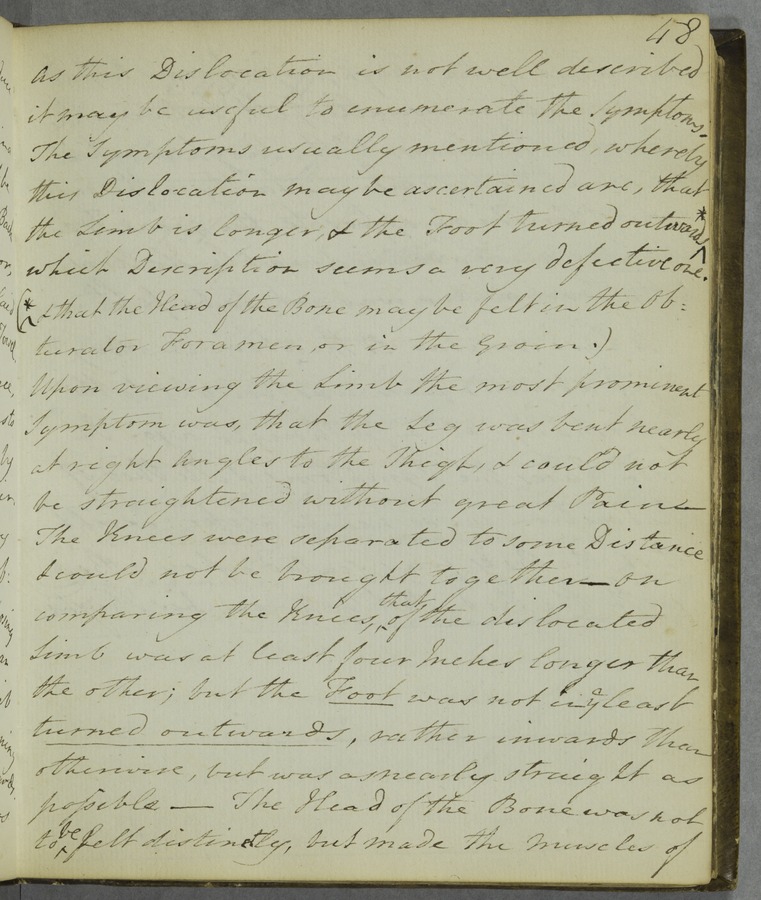 48
As this Dislocation is not well described
it may be useful to enumerate the Symptoms.
The Symptoms usually mentioned, whereby
this Dislocation may be ascertained are, that
the Limb is longer, & the Foot turned outwards *
which Description seems a very defective one.
(* & that the Head of the Bone may be felt in the Ob=
turator Foramen, or in the Groin.)
Upon viewing the Limb the most prominent
Symptom was, that the Leg was bent nearly
at right Angles to the Thigh, & could not
be straightened without great Pain—
The Knees were separated to some Distance
& could not be brought together — On
comparing the Knees, that of the dislocated
Limb was at least four Inches longer than
the other; but the Foot was not in ye least
turned outwards, rather inwards than
otherwise, but was as nearly straight as
possible — The Head of the Bone was not
to be felt distinctly, but made the Muscles of